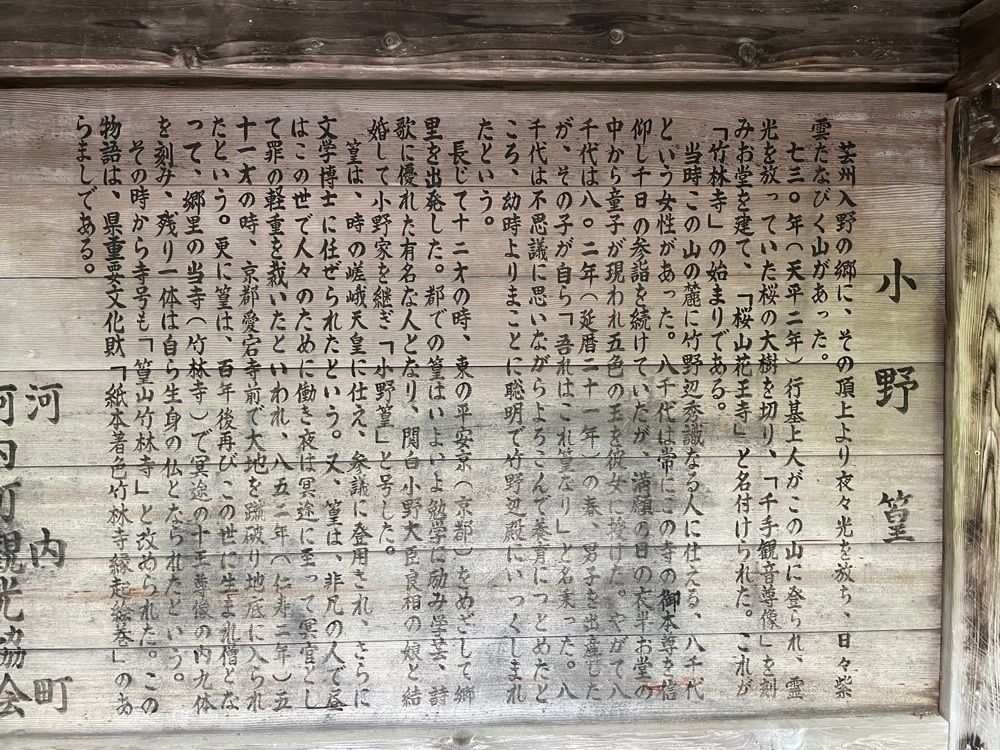 小野篁
芸州入野の郷に、その頂上より夜々光を放ち、日々紫
雲たなびく山があった。
七三〇年（天平二年）行基上人がこの山に登られ、霊
光を放っていた桜の大樹を切り、「千手観音尊像」を刻
みお堂を建て、「桜山花王寺」と名付けられた。これが
「竹林寺」の始まりである。
当時この山の麓に竹野辺秀識なる人に仕える、八千代
という女性があった。八千代は常にこの寺の御本尊を信
仰し千日の参詣を続けていたが、満願の日の夜半お堂の
中から童子が現われ五色の玉を彼女に授けた。やがて八
千代は八〇二年（延暦二十一年）の春、男子を出産した
が、その子が自ら「吾れはこれ篁なり」と名乗った。八
千代は不思議に思いながらよろこんで養育につとめたと
ころ、幼時よりまことに聡明で竹野辺殿にいつくしまれ
たという。
長じて十二才の時、東の平安京（京都）をめざして郷
里を出発した。都での篁はいよいよ勉学に励み学芸、詩
歌に優れた有名な人となり、関白小野大臣良相の娘と結
婚して小野家を継ぎ「小野篁」と号した。
篁は、時の嵯峨天皇に仕え、参議に登用され、さらに
文学博士に任ぜられたという。又、篁は、非凡の人で昼
はこの世で人々のために働き夜は冥途に至って冥官とし
て罪の軽重を裁いたといわれ、八五二年（仁寿二年）五
十一才の時、京都愛宕寺前で大地を蹴破り地底に入られ
たという。更に篁は、百年後再び、この世に生まれ僧とな
って、郷里の当寺（竹林寺）で冥途の十王尊像の内九体
を刻み、残り一体は自ら生身の仏となられたという。
その時から寺号も「篁山竹林寺」と改められた。この
物語は、県重要文化財「紙本著色竹林寺縁起絵巻」のあ
らましである。
河内町
河内町観光協会